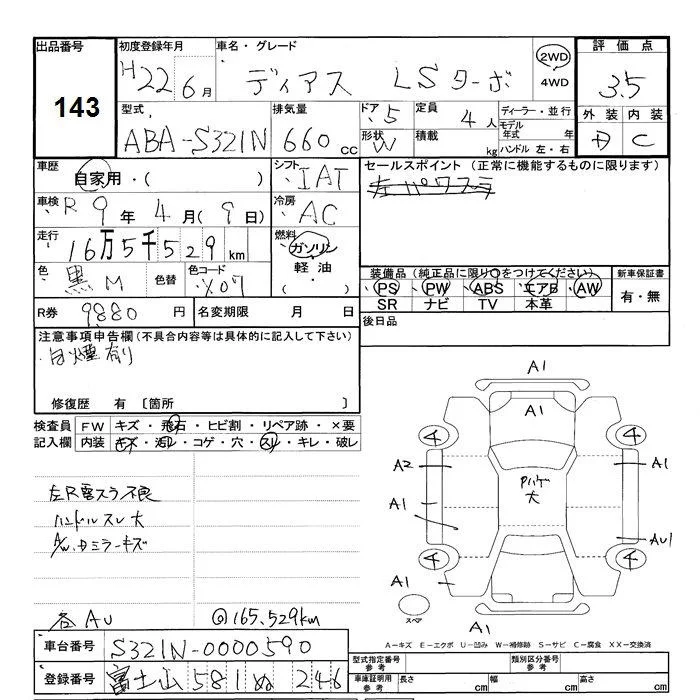 出品番号 初度登録年月 車名・グレード 評価点
143 H22 6月 ディアス LSターボ 2WD 4WD 3.5
型式 排気量 ドア 定員 ディーラー・並行 外装 内装
ABA-S321N 660 cc 5 4人 モデル年式 年 D C
形状 W 積載 kg ハンドル 左・右
車歴 シフト セールスポイント (正常に機能するものに限ります)
自家用・( ) IAT 左パワスラ
車検 R9年4月(9日) 冷房 AC
走行 燃料
16万5千529km ガソリン
軽油・
色 黒M 色替 色コード X07
装備品(純正品に限り○をつけてください) 新車保証書
PS PW ABS エアB AW 有・無
SR ナビ TV 本革
R券 9880円 名変期限 月 日 後日品
注意事項申告欄(不具合内容等は具体的に記入して下さい)
白煙有り
修復歴 有 〔箇所 〕
検査員 FW キズ・飛石・ヒビ割・リペア跡・×要
記入欄 内装 キズ・汚レ・コゲ・穴・スレ・キレ・破レ
左R電スラ不良
ハンドルスレ大
A/W.ドミラーキズ
各AU @165.529km
A1
A1
4 4
A2 Pハゲ大 A1
A1
AU1
4 4
A1
スペア A1
A-キズ E-エクボ U-凹み W-補修跡 S-サビ C-腐食 XX-交換済
車台番号 S321N-0000590
登録番号 富士山 581 ぬ 246
型式指定番号 参考 類別区分番号 参考
車庫証明用 参考 長さ cm 幅 cm 高さ cm